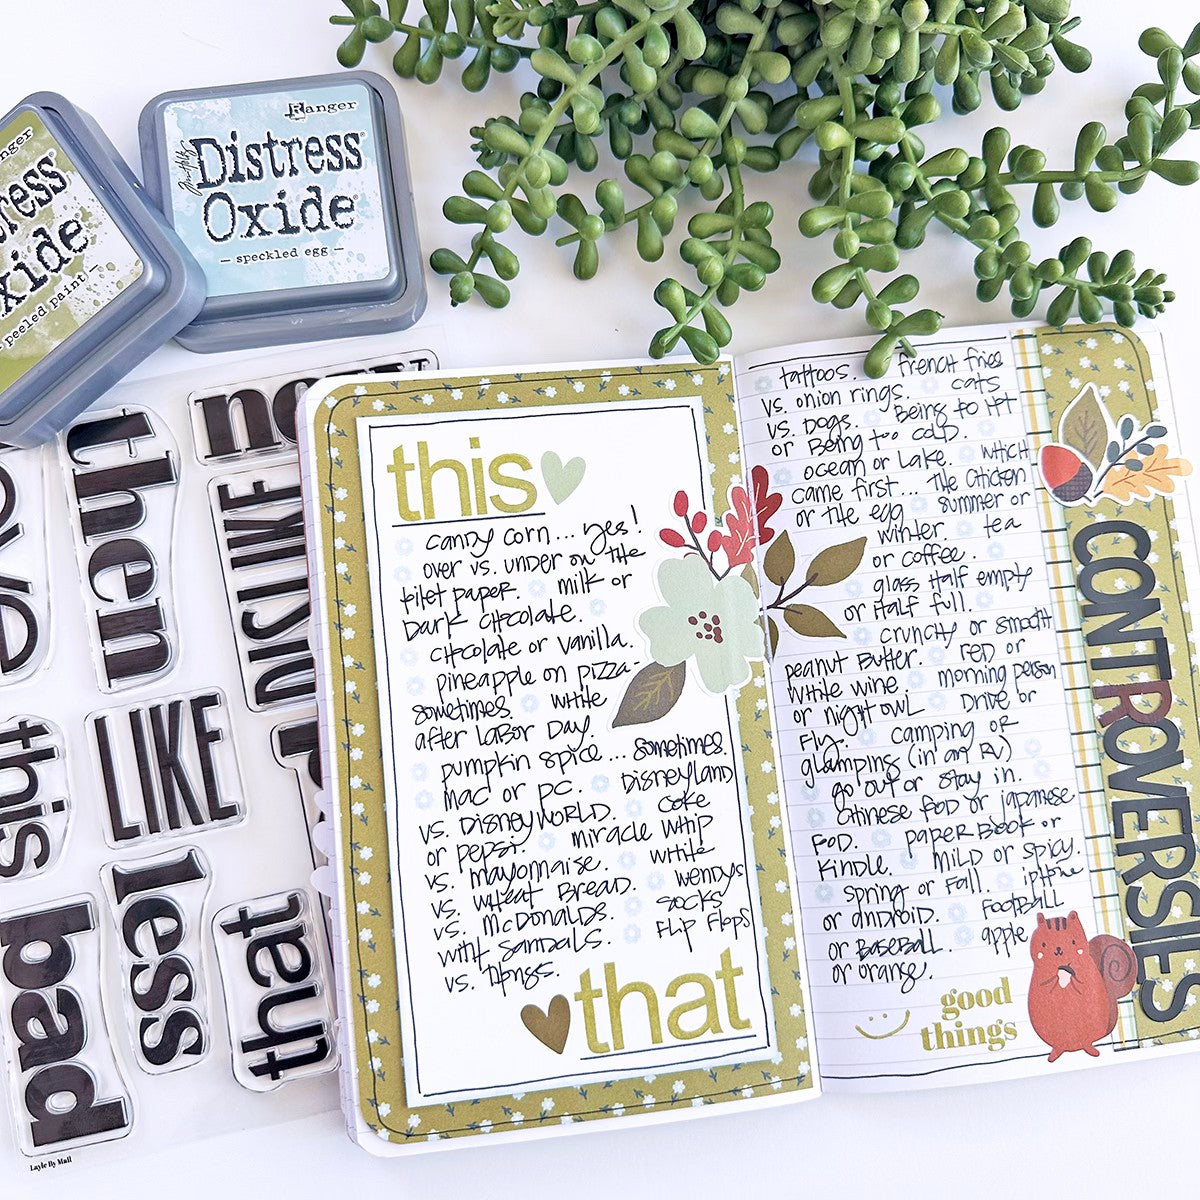 Ranger
Distress
Oxide
speckled egg
Distress
Oxide
peeled paint
now
then
DISLIKE
LIKE
this
less
bad
that
Layle By Mail
this
candy corn... yes!
over vs. under on the
tilet paper. milk or
Dark chocolate.
chocolate or vanilla.
pineapple on pizza-
sometimes. white
after labor Day.
pumpkin spice... sometimes.
mac or pc. Disneyland
vs. Disneyworld. coke
or pepsi. miracle whip
vs. mayomaise. white
vs. wheat Bread. wendys
vs. mcDonalds. socks
with sandals. Flip Flops
vs. thongs.
that
tattoos. french fries
vs. onion rings. cats
vs. Dogs. Being to Hot
or Being too cold.
ocean or Lake. which
came first... the chicken
or the egg. summer or
winter. tea
or coffee.
glass Half empty
or Half full.
crunchy or smooth
peanut Butter. red or
white wine. morning person
or night owl. Drive or
Fly. camping or
glamping (in an RV)
go out or stay in.
chinese food or japanese
food. paper Book or
kindle. mild or spicy.
spring or fall. iphone
or android. football
or Baseball. apple
or orange.
good
things
CONTROVERSIES